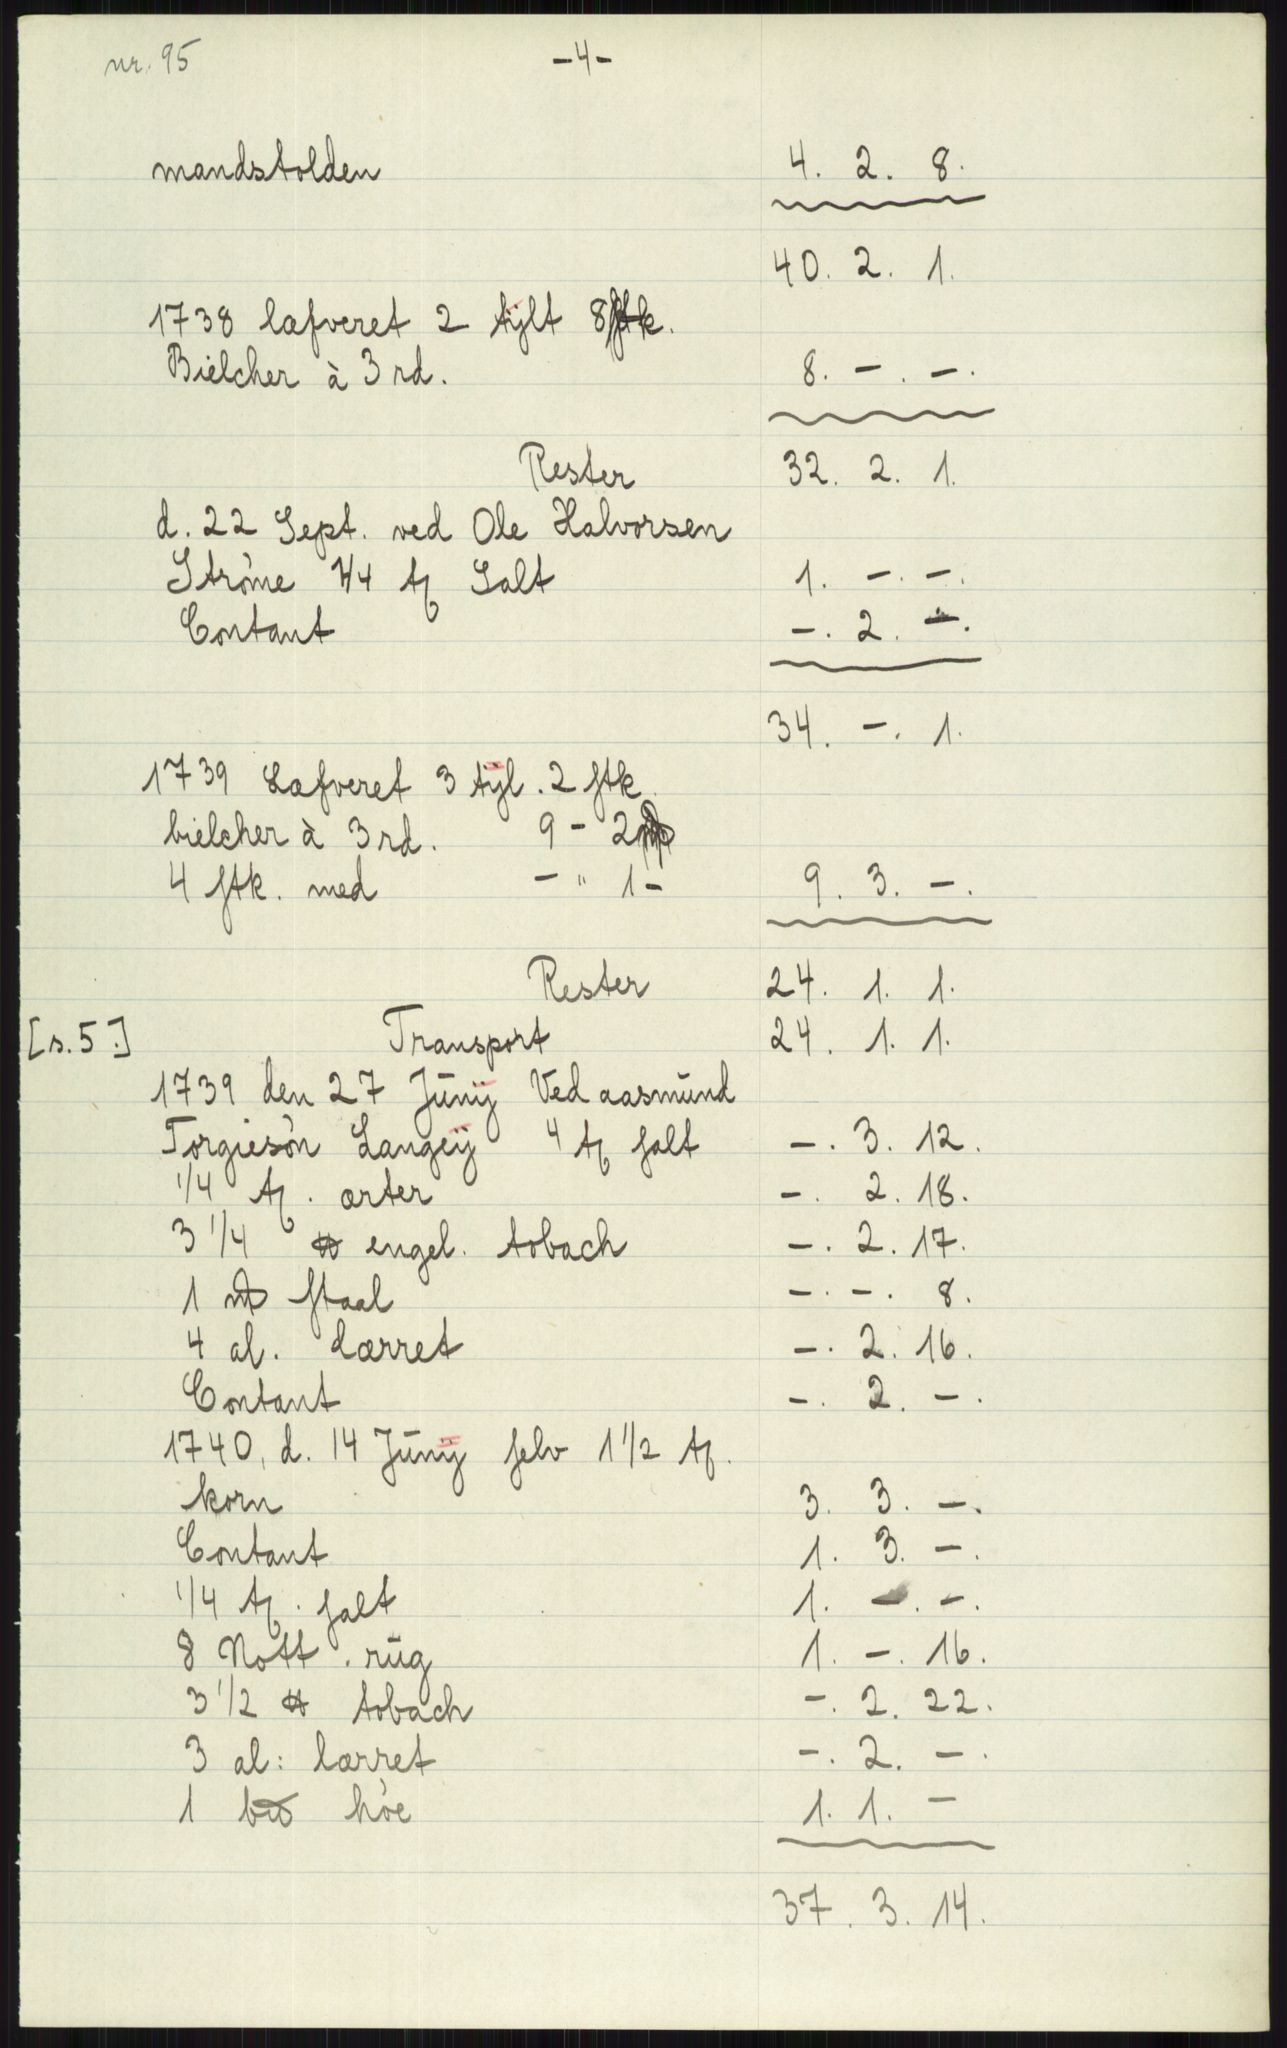 nr. 95 -4-
mandstolden 4. 2. 8.
40. 2. 1.
1738 læfveret 2 tÿlt 8 stk.
Bielcher à 3 rd. 8. -. -.
Rester 32. 2. 1.
d. 22 Sept. ved Ole Halvorsen
Strøme 1/4 tſ Salt 1. -. -.
Contant -. 2. -.
34. -. 1.
1739 Læfveret 3 tÿl. 2 stk
bielcher à 3 rd. 9 - 2
4 stk. med - " 1 - 9. 3. -.
Rester 24. 1. 1.
[s. 5.] Transport 24. 1. 1.
1739 den 27 Junÿ Ved aasmund
Torgiesøn Langeÿ 4 tſ salt -. 3. 12.
1/4 tſ. ærter -. 2. 18.
3 1/4 ℔ engel. tobach -. 2. 17.
1 staal -. -. 8.
4 al. Lærret -. 2. 16.
Contant -. 2. -.
1740, d. 14 Junÿ selv 1 1/2 tſ.
korn 3. 3. -.
Contant 1. 3. -.
1/4 tſ. salt 1. -. -.
8 Nott. rug 1. -. 16.
3 1/2 ℔ tobach -. 2. 22.
3 al: lærret -. 2. -.
1 høe 1. 1. -
37. 3. 14.